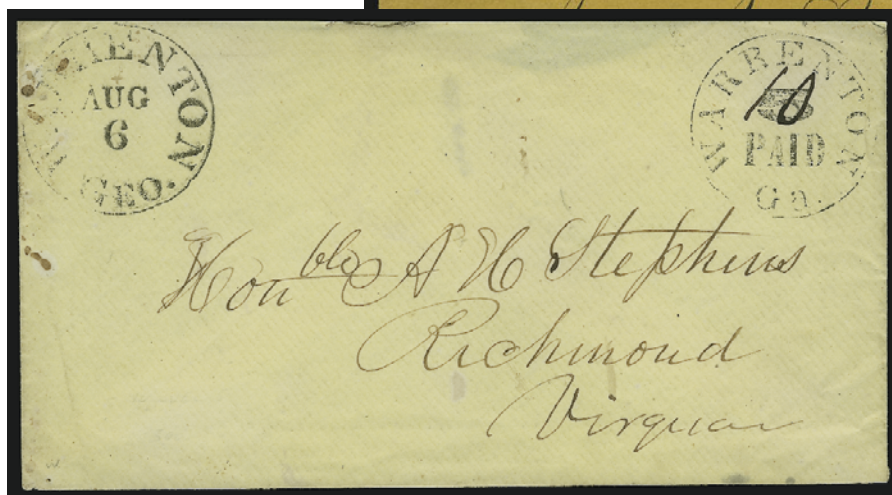 WARRENTON
AUG
6
GEO.
WARRENTON
10
PAID
Ga.
Honble A H Stephens
Richmond
Virginia